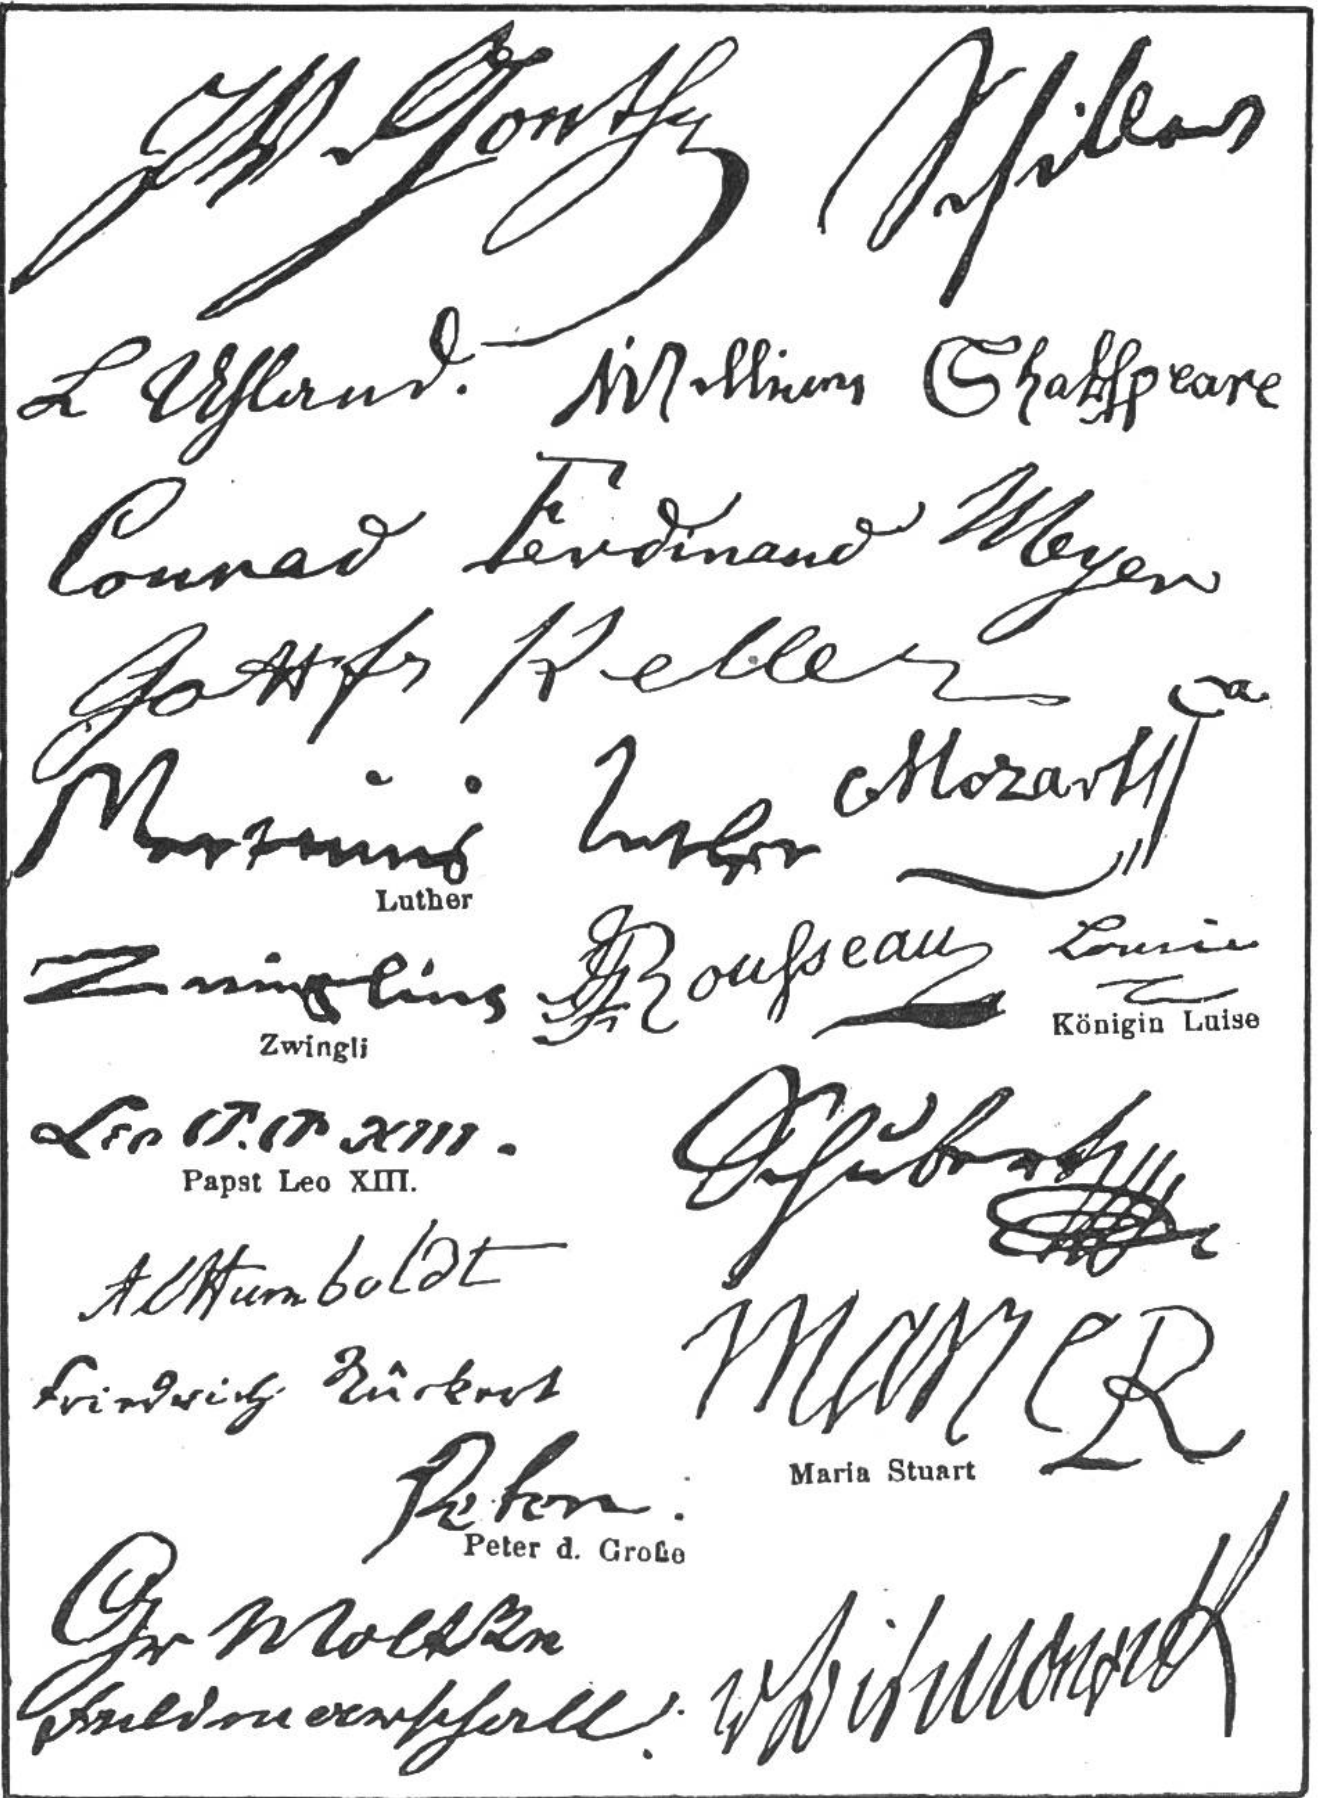 JW v Goethe Schiller
L Uhland. William Shakspeare
Conrad Ferdinand Meyer
Gottfr Keller
Martinus Luther Mozart
Luther
Zwinglius JJRousseau Louise
Zwingli Königin Luise
Leo P.P. XIII. Schubert
Papst Leo XIII.
AlHumboldt
Friedrich Rückert MARIE R
Maria Stuart
Peter.
Peter d. Große
Gr Moltke
Feldmarschall. vBismarck